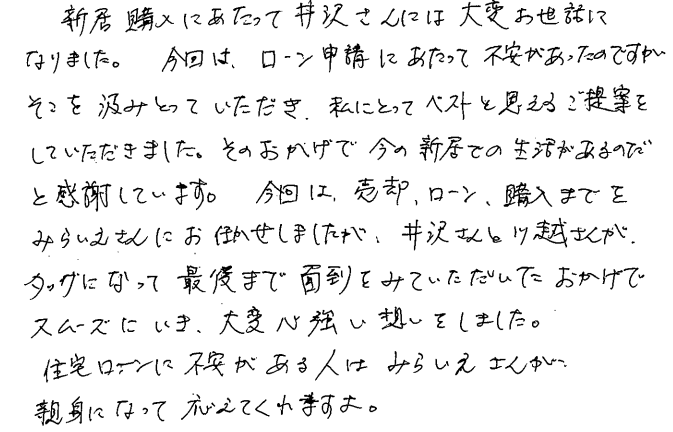 新居購入にあたって井沢さんには大変お世話に
なりました。 今回は、ローン申請にあたって不安があったのですが
そこを汲みとっていただき、私にとってベストと思えるご提案を
していただきました。そのおかげで今の新居での生活があるのだ
と感謝しています。 今回は、売却、ローン、購入までを
みらいえさんにお任せしましたが、井沢さんと川越さんが、
タッグになって最後まで面倒をみていただいたおかげで
スムーズにいき、大変心強い想いをしました。
住宅ローンに不安がある人はみらいえさんが、
親身になって応えてくれますよ。